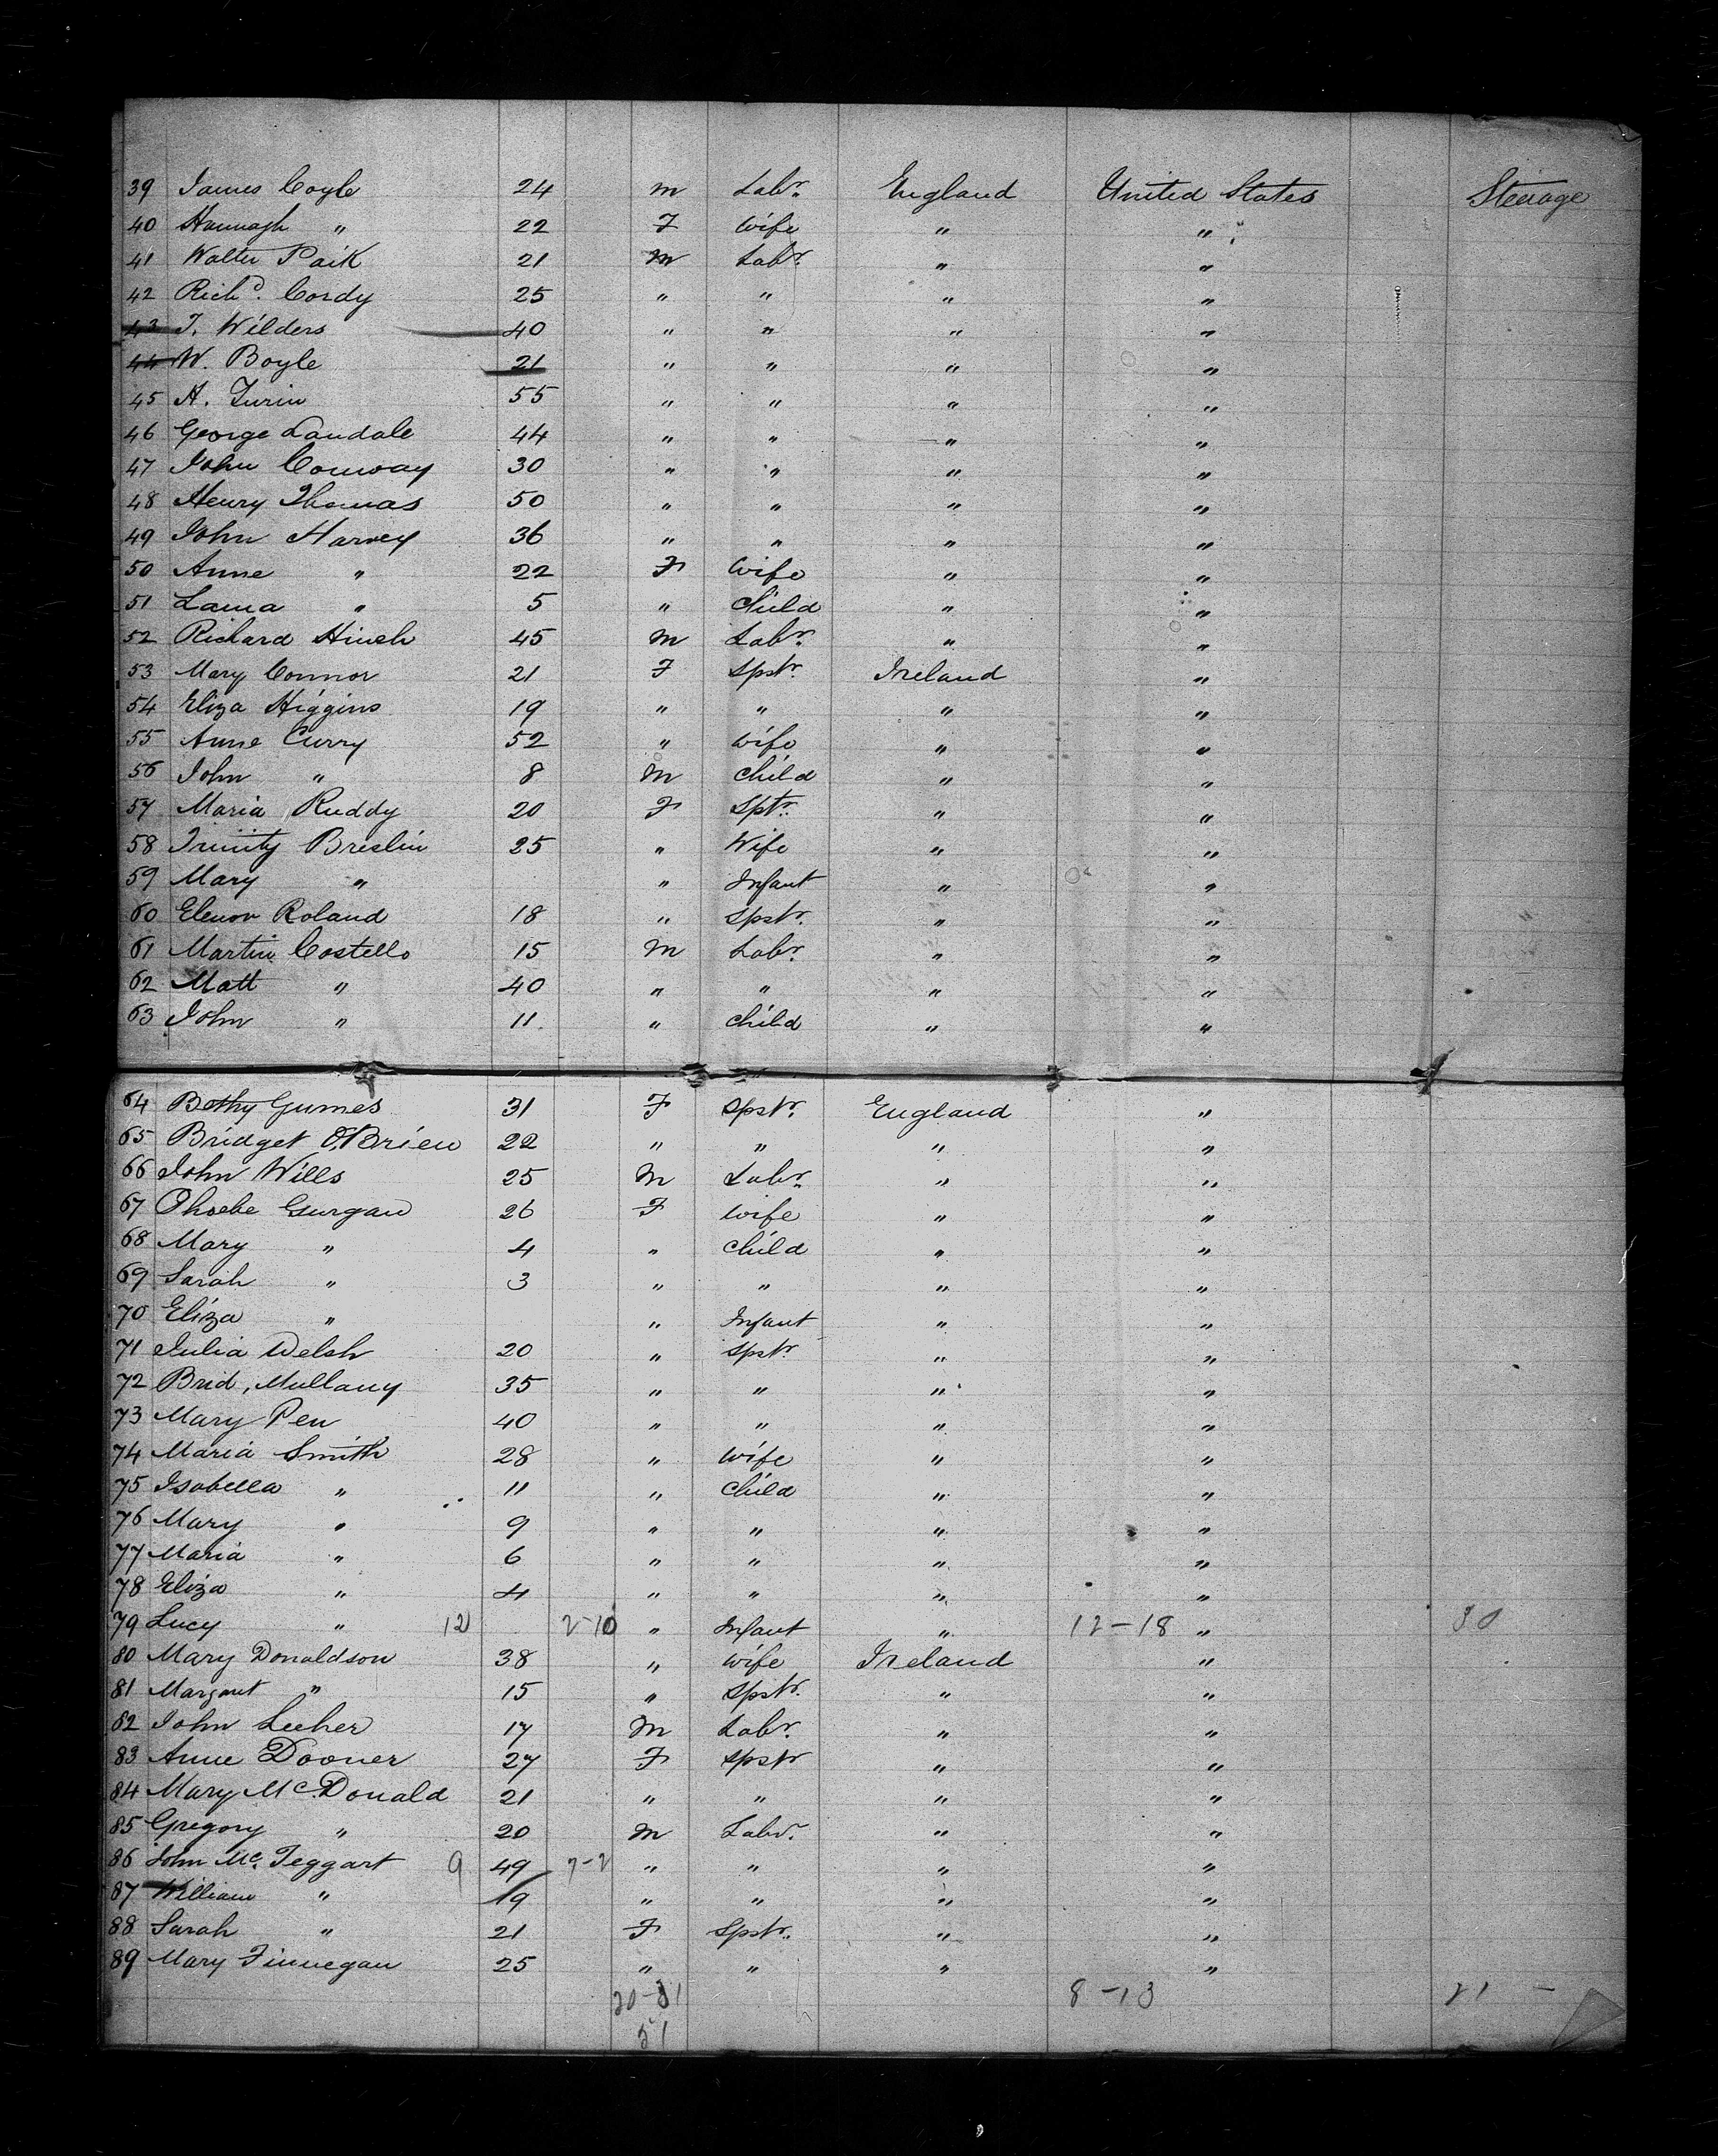 39 James Coyle 24 m Labr. England United States Steerage
40 Hannagh " 22 F Wife " "
41 Walter Paik 21 m Labr. " "
42 Richd. Cordy 25 " " " "
43 J. Wilders 40 " " " "
44 W. Boyle 21 " " " "
45 A. Turin 55 " " " "
46 George Landale 44 " " " "
47 John Conway 30 " " " "
48 Henry Thomas 50 " " " "
49 John Harvey 36 " " " "
50 Anne " 22 F Wife " "
51 Laura " 5 " Child " "
52 Richard Hinch 45 m Labr. " "
53 Mary Connor 21 F Spstr. Ireland "
54 Eliza Higgins 19 " " " "
55 Anne Curry 52 " Wife " "
56 John " 8 m Child " "
57 Maria Ruddy 20 F Sptr. " "
58 Trinity Breslin 25 " Wife " "
59 Mary " " Infant " "
60 Elenor Roland 18 " Spstr. " "
61 Martin Costello 15 m Labr. " "
62 Matt " 40 " " " "
63 John " 11 " Child " "
64 Bethy Gumes 31 F Spstr. England "
65 Bridget O'Brien 22 " " " "
66 John Wills 25 m Labr. " "
67 Phoebe Gurgan 26 F Wife " "
68 Mary " 4 " Child " "
69 Sarah " 3 " " " "
70 Eliza " " Infant " "
71 Julia Welsh 20 " Spstr. " "
72 Brid, Mullany 35 " " " "
73 Mary Pen 40 " " " "
74 Maria Smith 28 " Wife " "
75 Isabella " 11 " Child " "
76 Mary " 9 " " " "
77 Maria " 6 " " " "
78 Eliza " 4 " " " "
79 Lucy " 12 2-10 " Infant " 12-18 " 30
80 Mary Donaldson 38 " Wife Ireland "
81 Margaret " 15 " Spstr. " "
82 John Leeher 17 m Labr. " "
83 Anne Dooner 27 F Spstr " "
84 Mary McDonald 21 " " " "
85 Gregory " 20 m Labr. " "
86 John Mc.Teggart 9 49 7-2 " " " "
87 William " 19 " " " "
88 Sarah " 21 F Spstr. " "
89 Mary Finnegan 25 " " " "
20-31 8-13 21
51